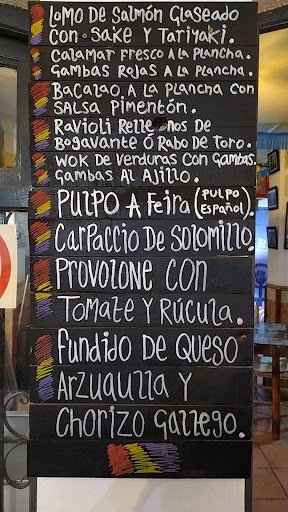 Lomo De Salmón Glaseado
Con Sake Y Tariyaki.
Calamar Fresco A La Plancha.
Gambas Rojas A La Plancha.
Bacalao A La Plancha con
Salsa Pimentón.
Ravioli Rellenos De
Bogavante Ó Rabo De Toro.
Wok De Verduras Con Gambas.
Gambas Al Ajillo.
Pulpo A Feira (Pulpo Español).
Carpaccio De Solomillo.
Provolone con
Tomate Y Rúcula.
Fundido De Queso
Arzuaulla Y
Chorizo Gallego.